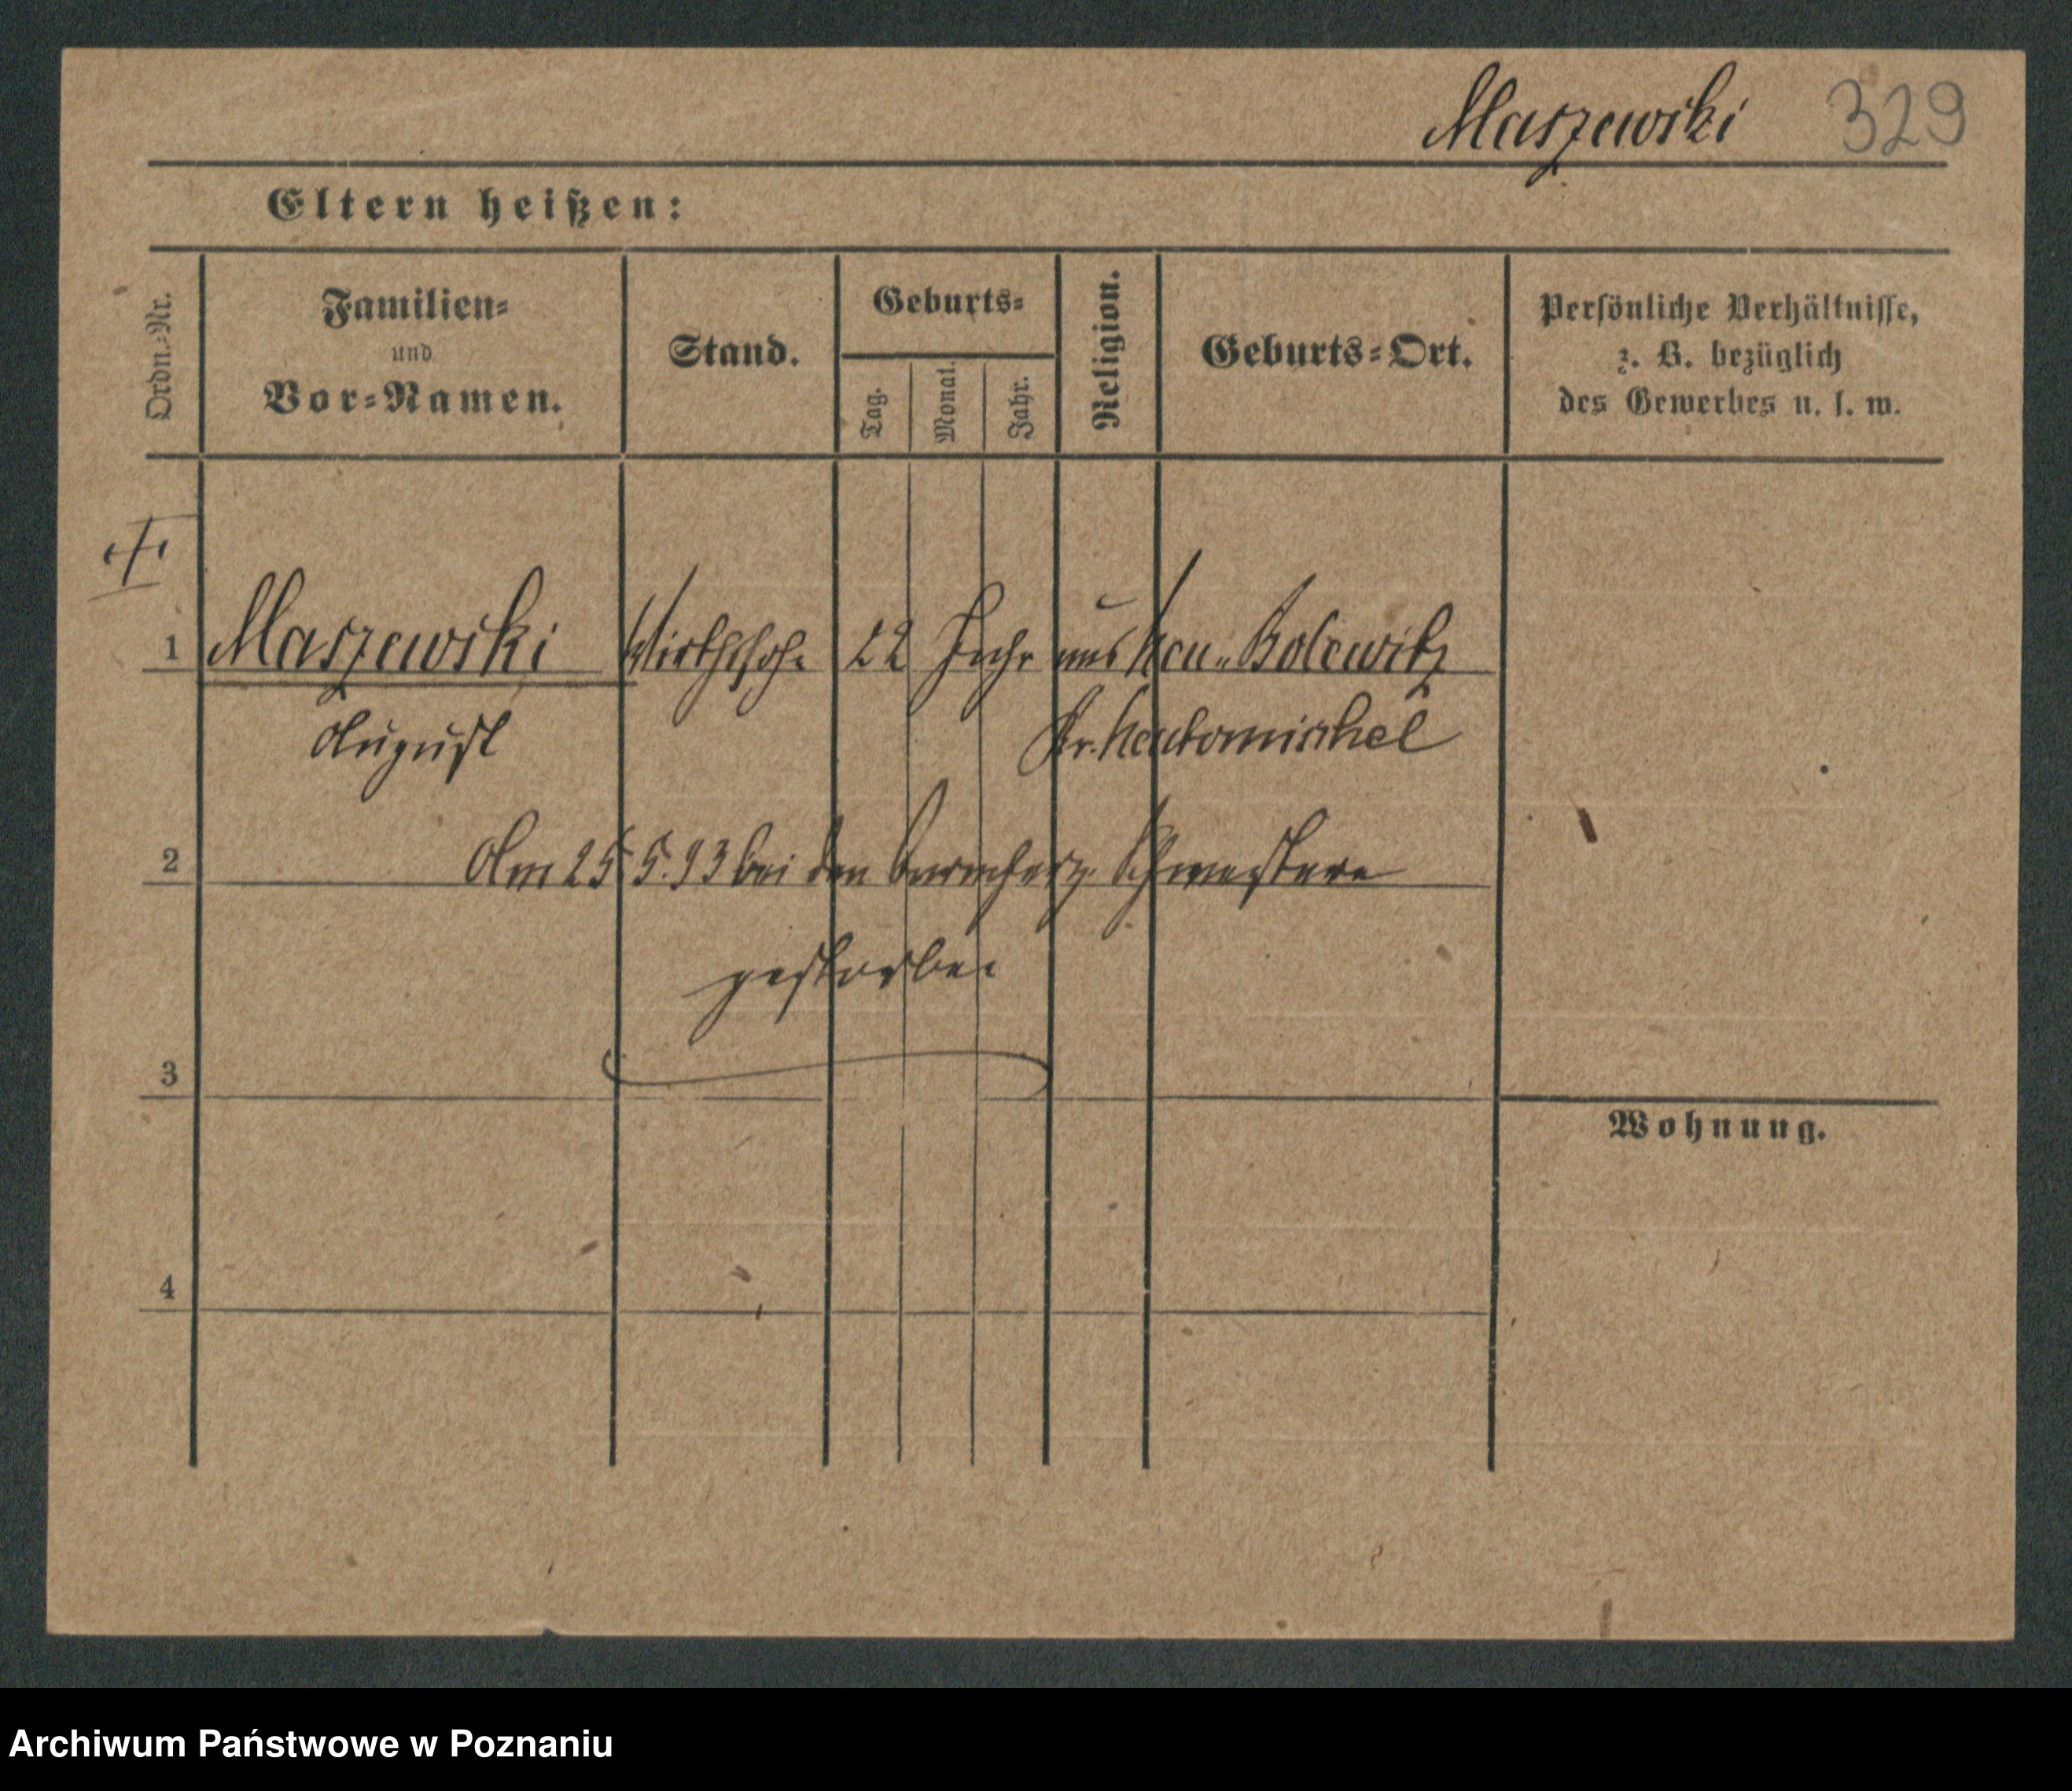 Maszewski 329
Eltern heißen:
Ordn.-Nr.
Familien-
und
Vor-Namen.
Stand.
Geburts-
Tag.
Monat.
Jahr.
Religion.
Geburts-Ort.
Persönliche Verhältnisse,
z. B. bezüglich
des Gewerbes u. s. w.
1 Maszewski Wirthssohn 22 Jahr aus Neu-Bolewitz
August Kr. Neutomischel
2 Am 25.5.93 bei den barmherz. Schwestern
gestorben
3
Wohnung.
4
Archiwum Państwowe w Poznaniu